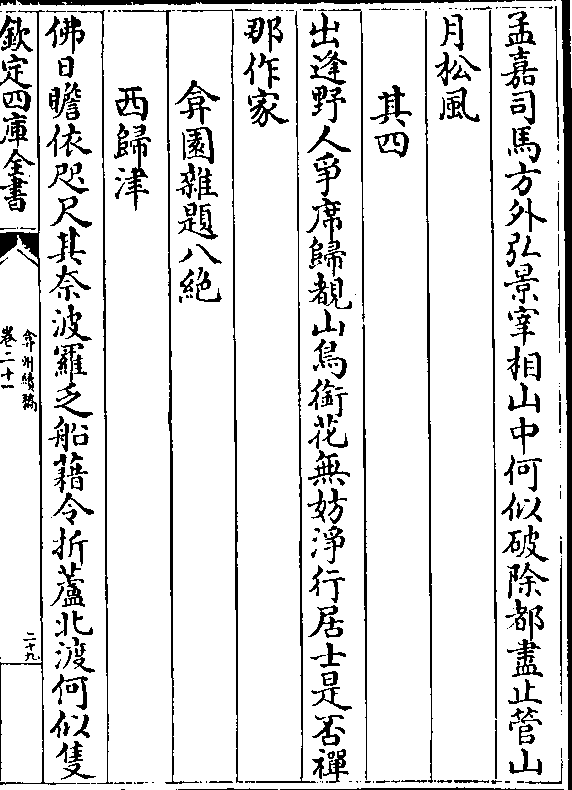 孟嘉司馬方外弘景宰相山中何似破除都盡止管山
月松風
其四
出逢野人爭席歸覩山鳥銜花無妨淨行居士是否禪
那作家
弇園雜題八絶
西歸津
佛日瞻依咫尺其奈波羅乏船藉令折蘆北渡何似隻
欽定四庫全書
弇州續稿
卷二十一
二十九